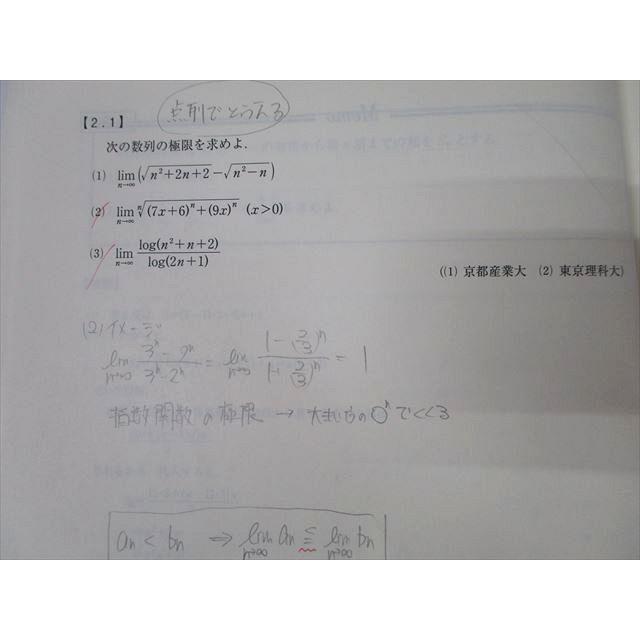 点列でとらえる
【2.1】
次の数列の極限を求めよ.
(1) lim n→∞ (√(n²+2n+2) − √(n²−n))
(2) lim n→∞ ⁿ√((7x+6)ⁿ+(9x)ⁿ) (x>0)
(3) lim n→∞ log(n²+n+2) / log(2n+1)
((1) 京都産業大 (2) 東京理科大)
(2)イメージ
lim n→∞ (3ⁿ−2ⁿ)/(3ⁿ−2ⁿ) = lim n→∞ (1−(2/3)ⁿ)/(1−(2/3)ⁿ) = 1
指数関数の極限 → 大きい方の○ⁿでくくる
an < bn ⇒ lim n→∞ an ≦ lim n→∞ bn